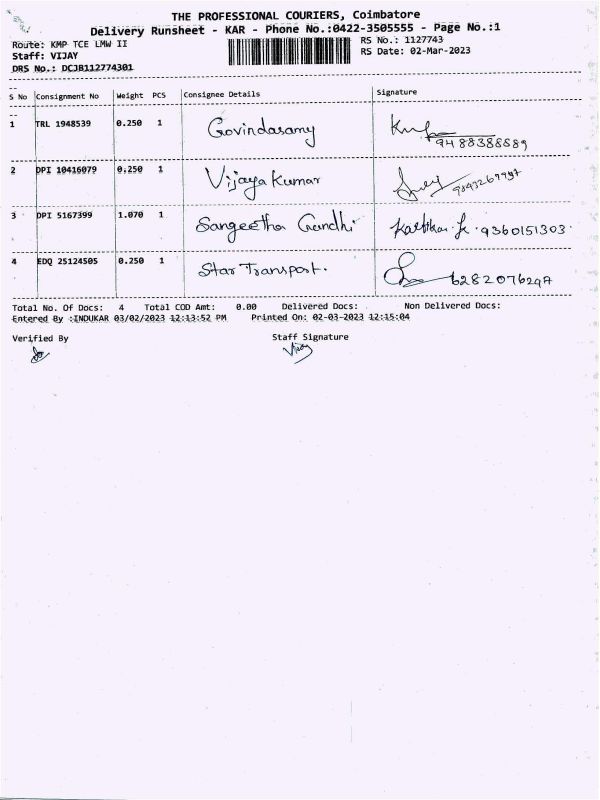 THE PROFESSIONAL COURIERS, Coimbatore
Delivery Runsheet - KAR - Phone No.:0422-3505555 - Page No.:1
Route: KMP TCE LMW II RS No.: 1127743
Staff: VIJAY RS Date: 02-Mar-2023
DRS No.: DCJB112774301
S No Consignment No Weight PCS Consignee Details Signature
1 TRL 1948539 0.250 1 Govindasamy 9488388889
2 DPI 10416079 0.250 1 Vijaya Kumar
3 DPI 5167399 1.070 1 Sangeetha Gandhi 9360151303
4 EDQ 25124505 0.250 1 Star Transport. 6282076297
Total No. Of Docs: 4 Total COD Amt: 0.00 Delivered Docs: Non Delivered Docs:
Entered By :INDUKAR 03/02/2023 12:13:52 PM Printed On: 02-03-2023 12:15:04
Verified By Staff Signature
Vijay